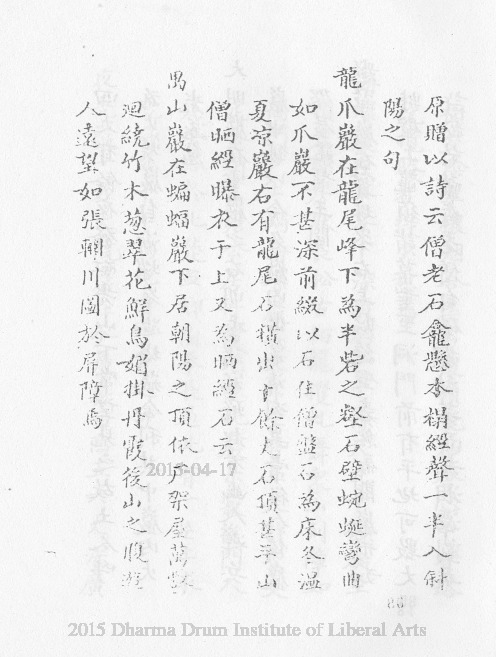 原贈以詩云僧老石龕懸杏榻經聲一半入斜
陽之句
龍爪巖在龍尾峰下為半砦之壑石壁蜿蜒彎曲
如爪巖不甚深前綴以石住僧盤石為床冬溫
夏凉巖右有龍尾石橫出丈餘丈石頂甚平山
僧晒經曝衣于上又為晒經石云
禺山巖在蝙蝠巖下居朝陽之頂依戶架屋萬
迴繞竹木葱翠花鮮鳥媚掛丹霞後山之腹遊
人遠望如張輞川圖於屏障焉
2015-04-17
86
2015 Dharma Drum Institute of Liberal Arts